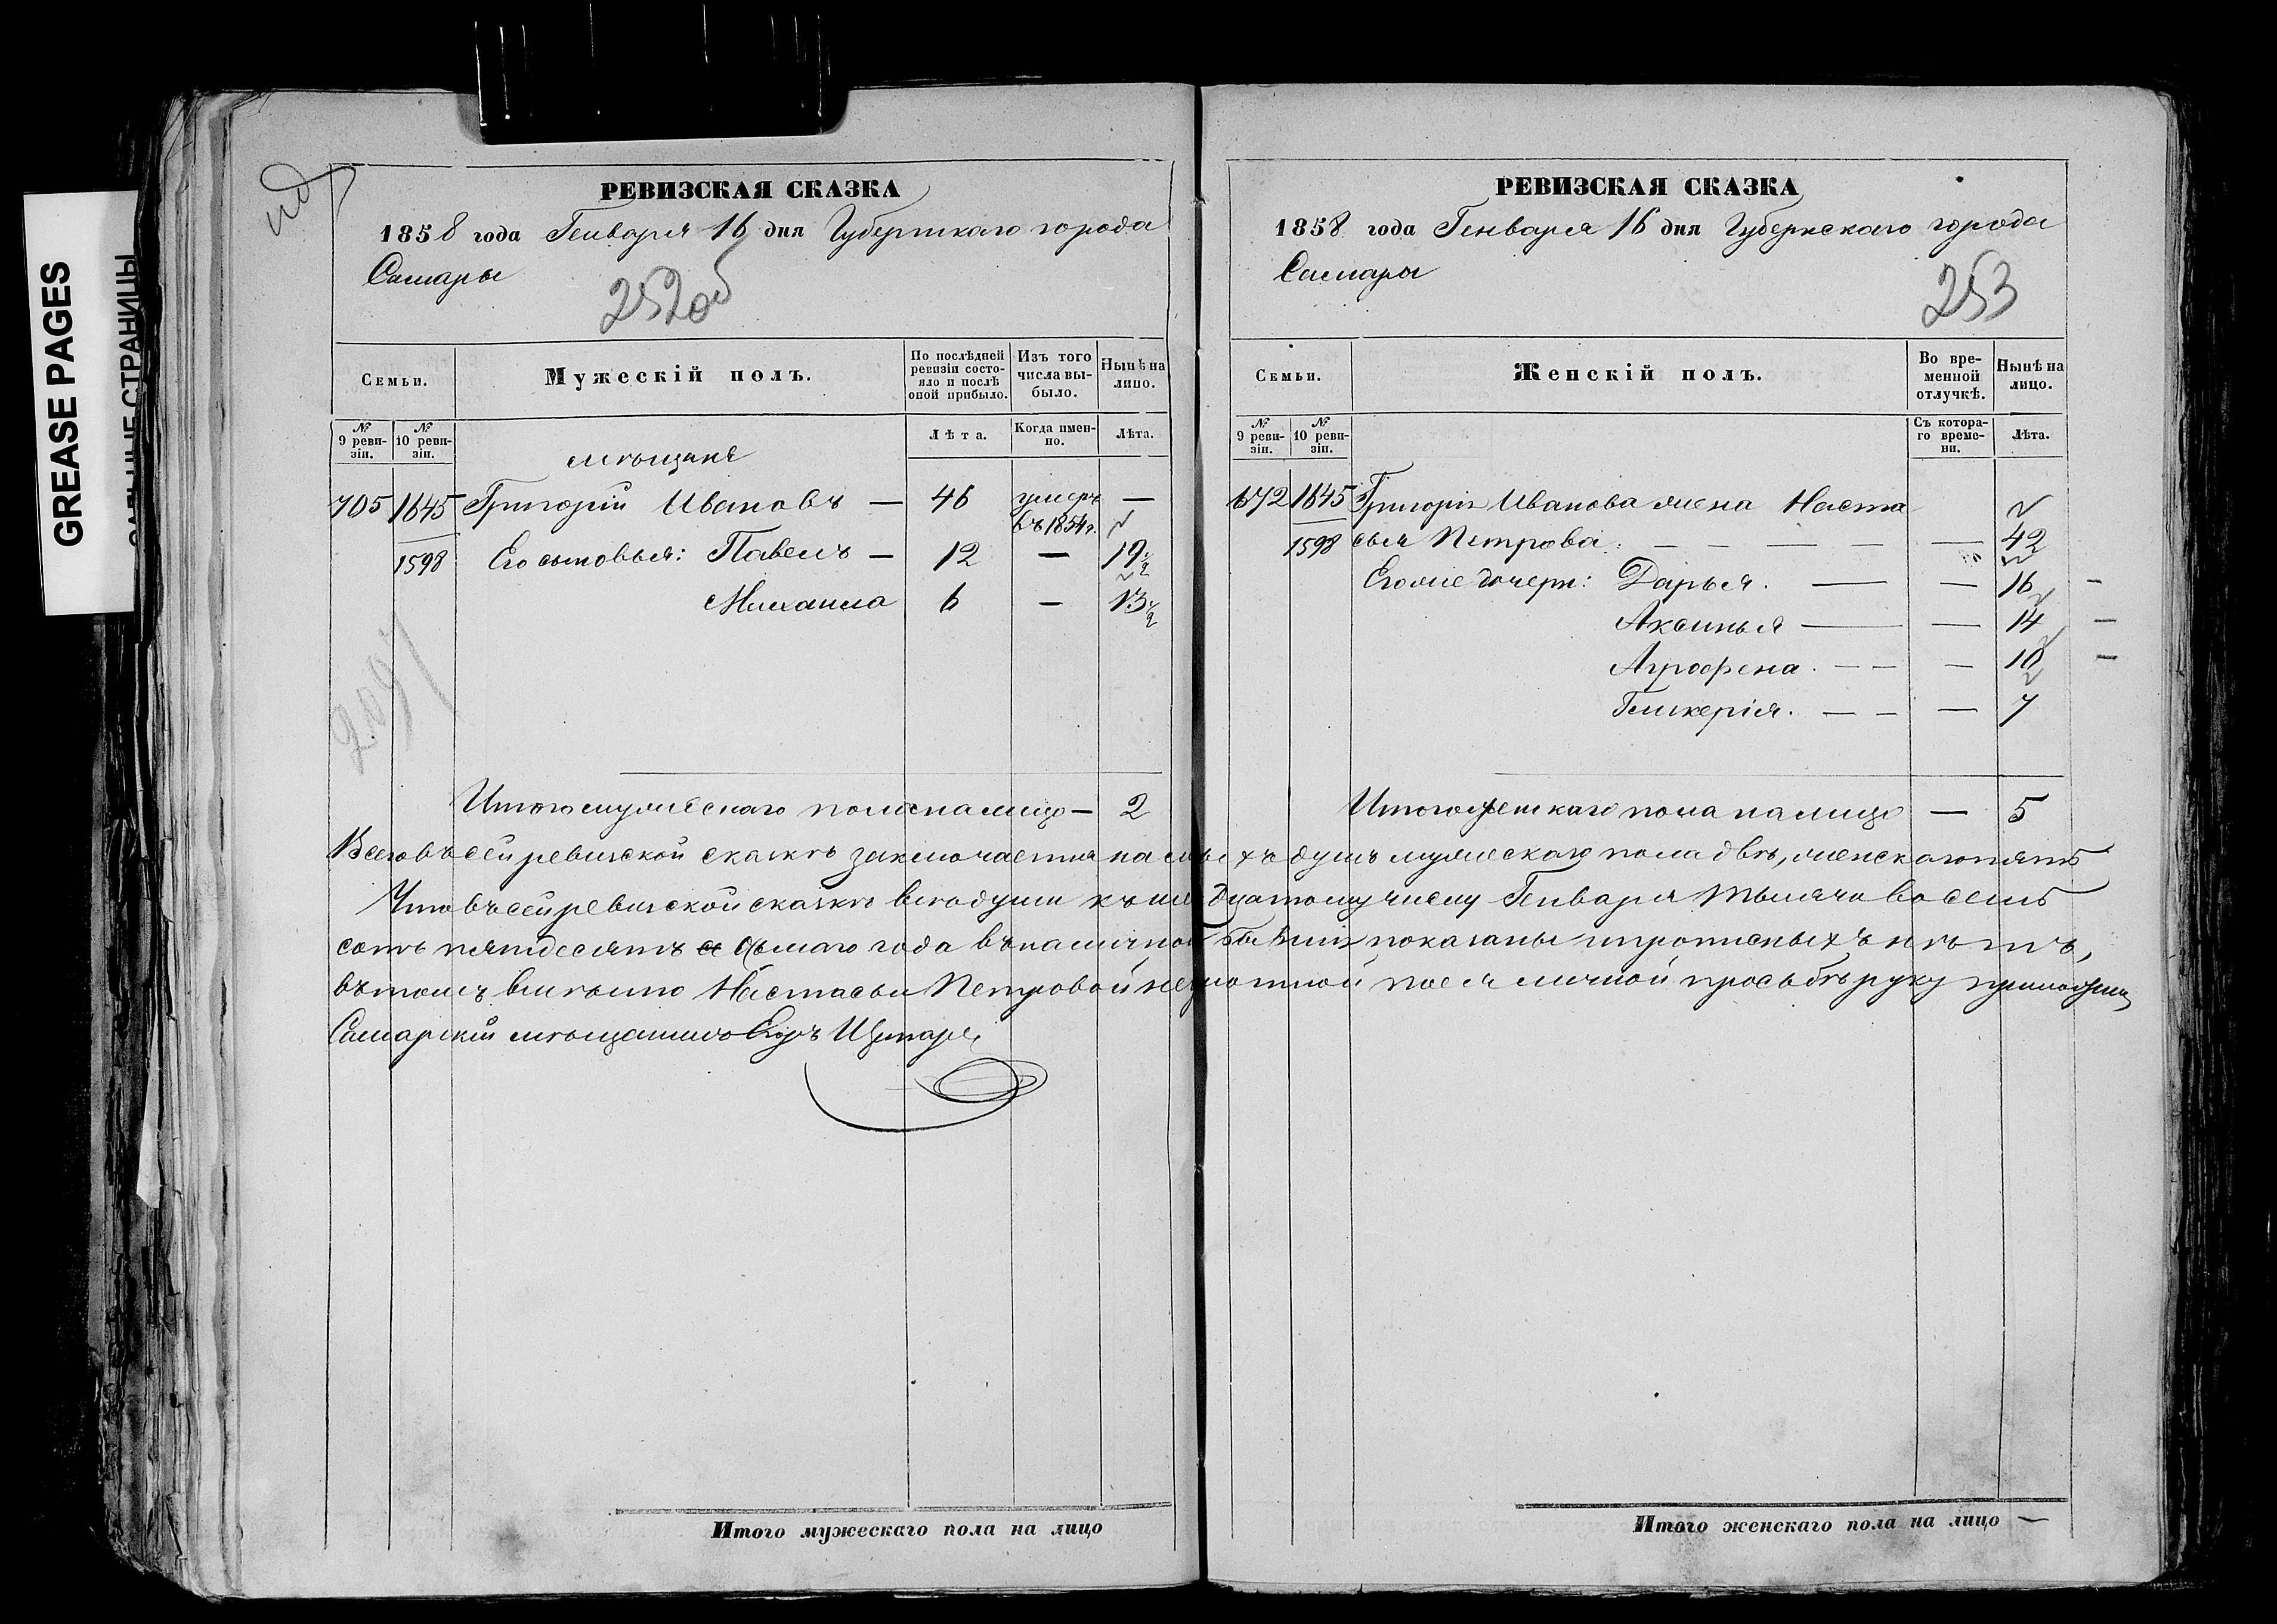 GREASE PAGES
САЛЬНЫЕ СТРАНИЦЫ
РЕВИЗСКАЯ СКАЗКА
1858 года Генваря 16 дня Губернскаго города
Самары
252об
Семьи.
Мужескій полъ.
По послѣдней ревизіи состояло и послѣ оной прибыло.
Изъ того числа выбыло.
Нынѣ на лицо.
№ 9 ревизіи.
№ 10 ревизіи.
Лѣта.
Когда именно.
Лѣта.
мѣщане
705 1645 Григорій Ивановъ — 46 умеръ въ 1854 г. —
1598 Его сыновья: Павелъ — 12 — 19
Михаила 6 — 13
2091
Итого мужескаго пола на лицо — 2
РЕВИЗСКАЯ СКАЗКА
1858 года Генваря 16 дня Губернскаго города
Самары
253
Семьи.
Женскій полъ.
Во временной отлучкѣ.
Нынѣ на лицо.
№ 9 ревизіи.
№ 10 ревизіи.
Съ котораго времени.
Лѣта.
672 1645 Григорія Иванова жена Наста
1598 сья Петрова. — — — — — 42
Его же дочери: Дарья. — — 16 —
Аксинья — — 14 —
Агрофена. — — — 10 —
Гликерія. — — — 7
Итого женскаго пола на лицо — 5
Всего въ сей ревизской сказкѣ заключается на лицо душъ мужескаго пола двѣ, женскаго пять
Что въ сей ревизской сказкѣ всѣ души къ шестнадцатому числу Генваря тысяча восемь
сотъ пятьдесятъ осьмаго года въ наличной бытности показаны и прописныхъ нѣтъ,
въ томъ вмѣсто Настасьи Петровой неграмотной по ея личной просьбѣ руку приложилъ
Самарскій мѣщанинъ
Итого мужескаго пола на лицо
Итого женскаго пола на лицо —